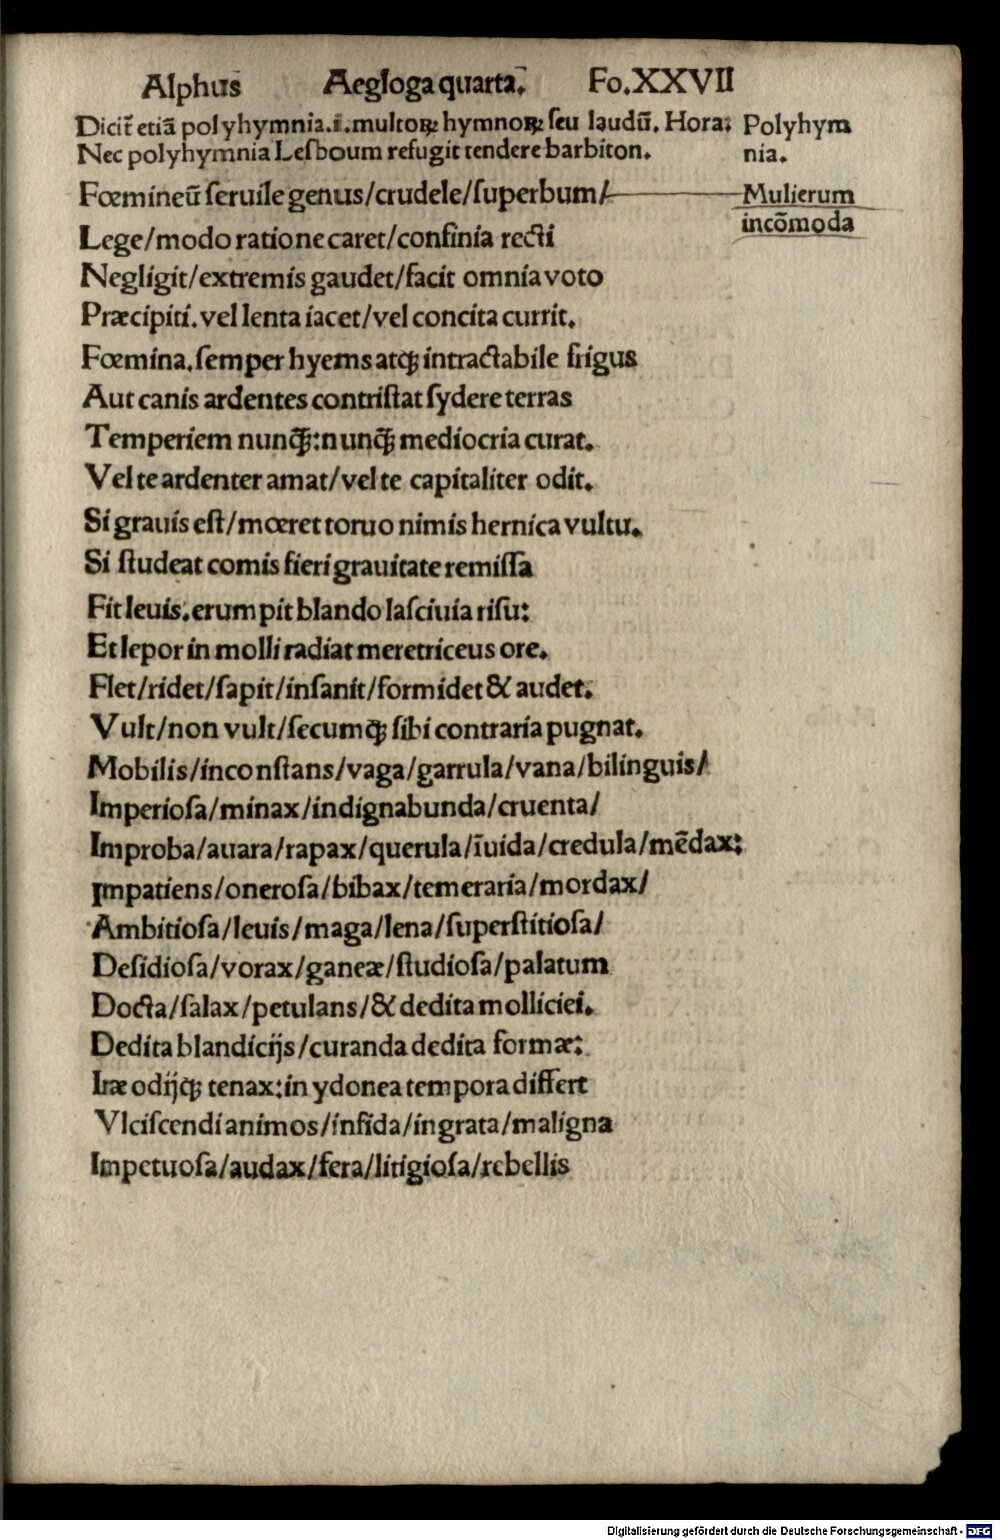 Alphus Aegloga quarta. Fo.XXVII
Dicit̃ etiã polyhymnia.i.multoꝝ hymnoꝝ seu laudũ. Hora: Polyhym
Nec polyhymnia Lesboum refugit tendere barbiton. nia.
Fœmineũ ſeruile genus/crudele/ſuperbum/ Mulierum
incõmoda
Lege/modo ratione caret/confinia recti
Negligit/extremis gaudet/facit omnia voto
Præcipiti. vel lenta iacet/vel concita currit.
Fœmina.ſemper hyems atqꝫ intractabile frigus
Aut canis ardentes contriſtat ſydere terras
Temperiem nunqꝫ:nunqꝫ mediocria curat.
Vel te ardenter amat/vel te capitaliter odit.
Si grauis eſt/mœret toruo nimis hernica vultu.
Si ſtudeat comis fieri grauitate remiſſa
Fit leuis.erumpit blando laſciuia riſu:
Et lepor in molli radiat meretriceus ore.
Flet/ridet/ſapit/inſanit/formidet & audet.
Vult/non vult/ſecumqꝫ ſibi contraria pugnat.
Mobilis/inconſtans/vaga/garrula/vana/bilinguis/
Imperioſa/minax/indignabunda/cruenta/
Improba/auara/rapax/querula/ĩuida/credula/mẽdax:
Impatiens/oneroſa/bibax/temeraria/mordax/
Ambitioſa/leuis/maga/lena/ſuperſtitioſa/
Deſidioſa/vorax/ganeæ/ſtudioſa/palatum
Docta/ſalax/petulans/& dedita molliciei.
Dedita blandicijs/curanda dedita formæ:
Iræ odijqꝫ tenax:in ydonea tempora differt
Vlciſcendi animos/infida/ingrata/maligna
Impetuoſa/audax/fera/litigioſa/rebellis
Digitalisierung gefördert durch die Deutsche Forschungsgemeinschaft - DFG